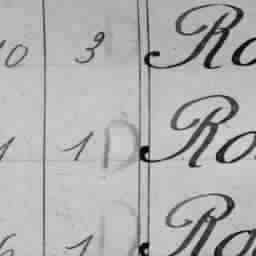 10 3 Ro
1 1 D Ro
6 1 D Ro